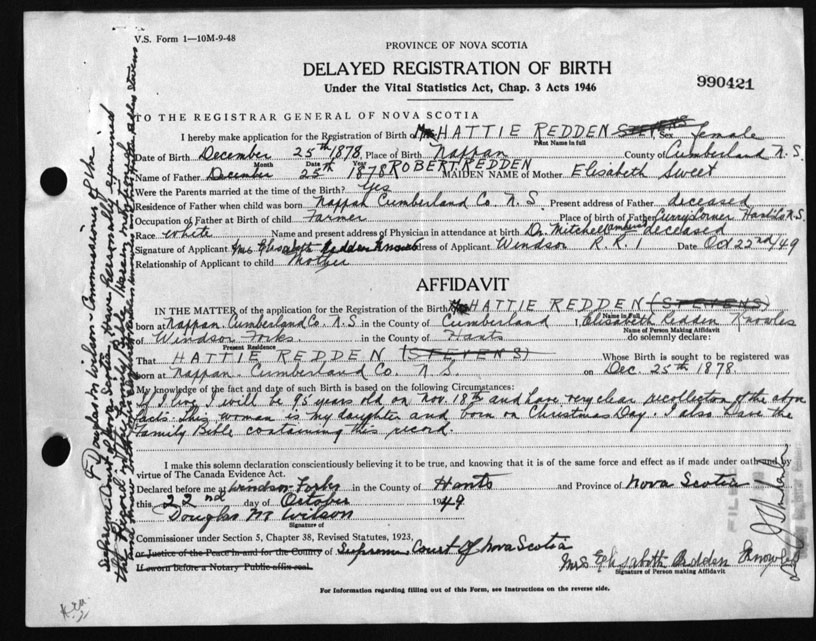 V.S. Form 1—10M-9-48
PROVINCE OF NOVA SCOTIA
DELAYED REGISTRATION OF BIRTH
Under the Vital Statistics Act, Chap. 3 Acts 1946
990421
TO THE REGISTRAR GENERAL OF NOVA SCOTIA
I hereby make application for the Registration of Birth of Mrs HATTIE REDDEN STEVENS Sex female
Print Name in full
Date of Birth December 25th 1878 Place of Birth Nappan County of Cumberland N.S.
Month Date of Year
Name of Father December 25th 1878 ROBERT REDDEN MAIDEN NAME of Mother Elisabeth Sweet
Were the Parents married at the time of the Birth? Yes
Residence of Father when child was born Nappan Cumberland Co. N.S. Present address of Father deceased
Occupation of Father at Birth of child Farmer Place of birth of Father Curry's Corner Hants Co N.S.
Race White Name and present address of Physician in attendance at birth Dr. Mitchell (Amherst) deceased
Signature of Applicant Mrs Elisabeth Redden Knowles Address of Applicant Windsor R.R.1 Date Oct 22nd/49
Relationship of Applicant to child Mother
AFFIDAVIT
IN THE MATTER of the application for the Registration of the Birth Mrs HATTIE REDDEN (STEVENS)
Name in full
born at Nappan, Cumberland Co. N.S. in the County of Cumberland I, Elisabeth Redden Knowles
Name of Person Making Affidavit
of Windsor Forks. in the County of Hants do solemnly declare:
Present Residence
That HATTIE REDDEN (STEVENS) Whose Birth is sought to be registered was
born at Nappan. Cumberland Co. N S on Dec. 25th 1878.
My knowledge of the fact and date of such Birth is based on the following Circumstances:
If I live I will be 95 years old on Nov. 18th and have very clear recollection of the above
facts. This woman is my daughter and born on Christmas Day. I also have the
Family Bible containing this record.
I make this solemn declaration conscientiously believing it to be true, and knowing that it is of the same force and effect as if made under oath and by
virtue of The Canada Evidence Act.
Declared before me at Windsor Forks in the County of Hants and Province of Nova Scotia
this 22nd day of October 1949
Douglas M Wilson
Signature of
Commissioner under Section 5, Chapter 38, Revised Statutes, 1923,
or Justice of the Peace in and for the County of Supreme Court of Nova Scotia
If sworn before a Notary Public affix seal.
Mrs Elisabeth Redden Knowles
Signature of Person making Affidavit
For Information regarding filling out of this Form, see Instructions on the reverse side.
I Douglas M Wilson - Commissioner of the
Supreme Court of Nova Scotia have personally examined
the record in the Family Bible
FILED